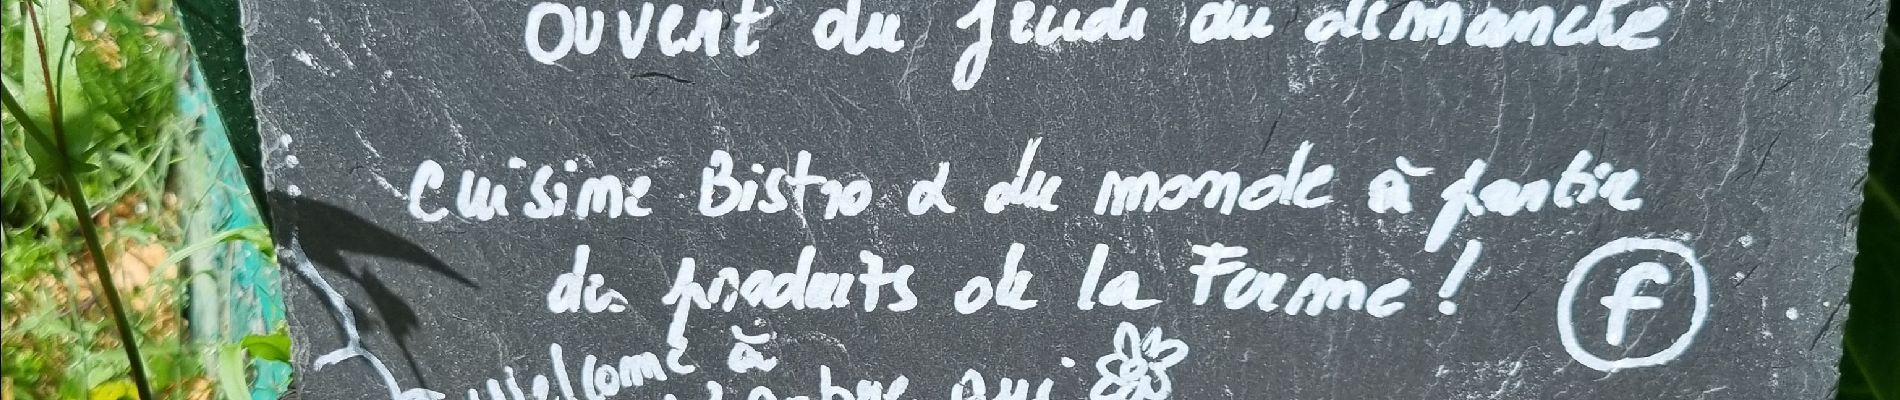 ouvert du jeudi au dimanche
Cuisine Bistro & du monde à partir
des produits de la Ferme !
f
Welcome à
l'arbre qui